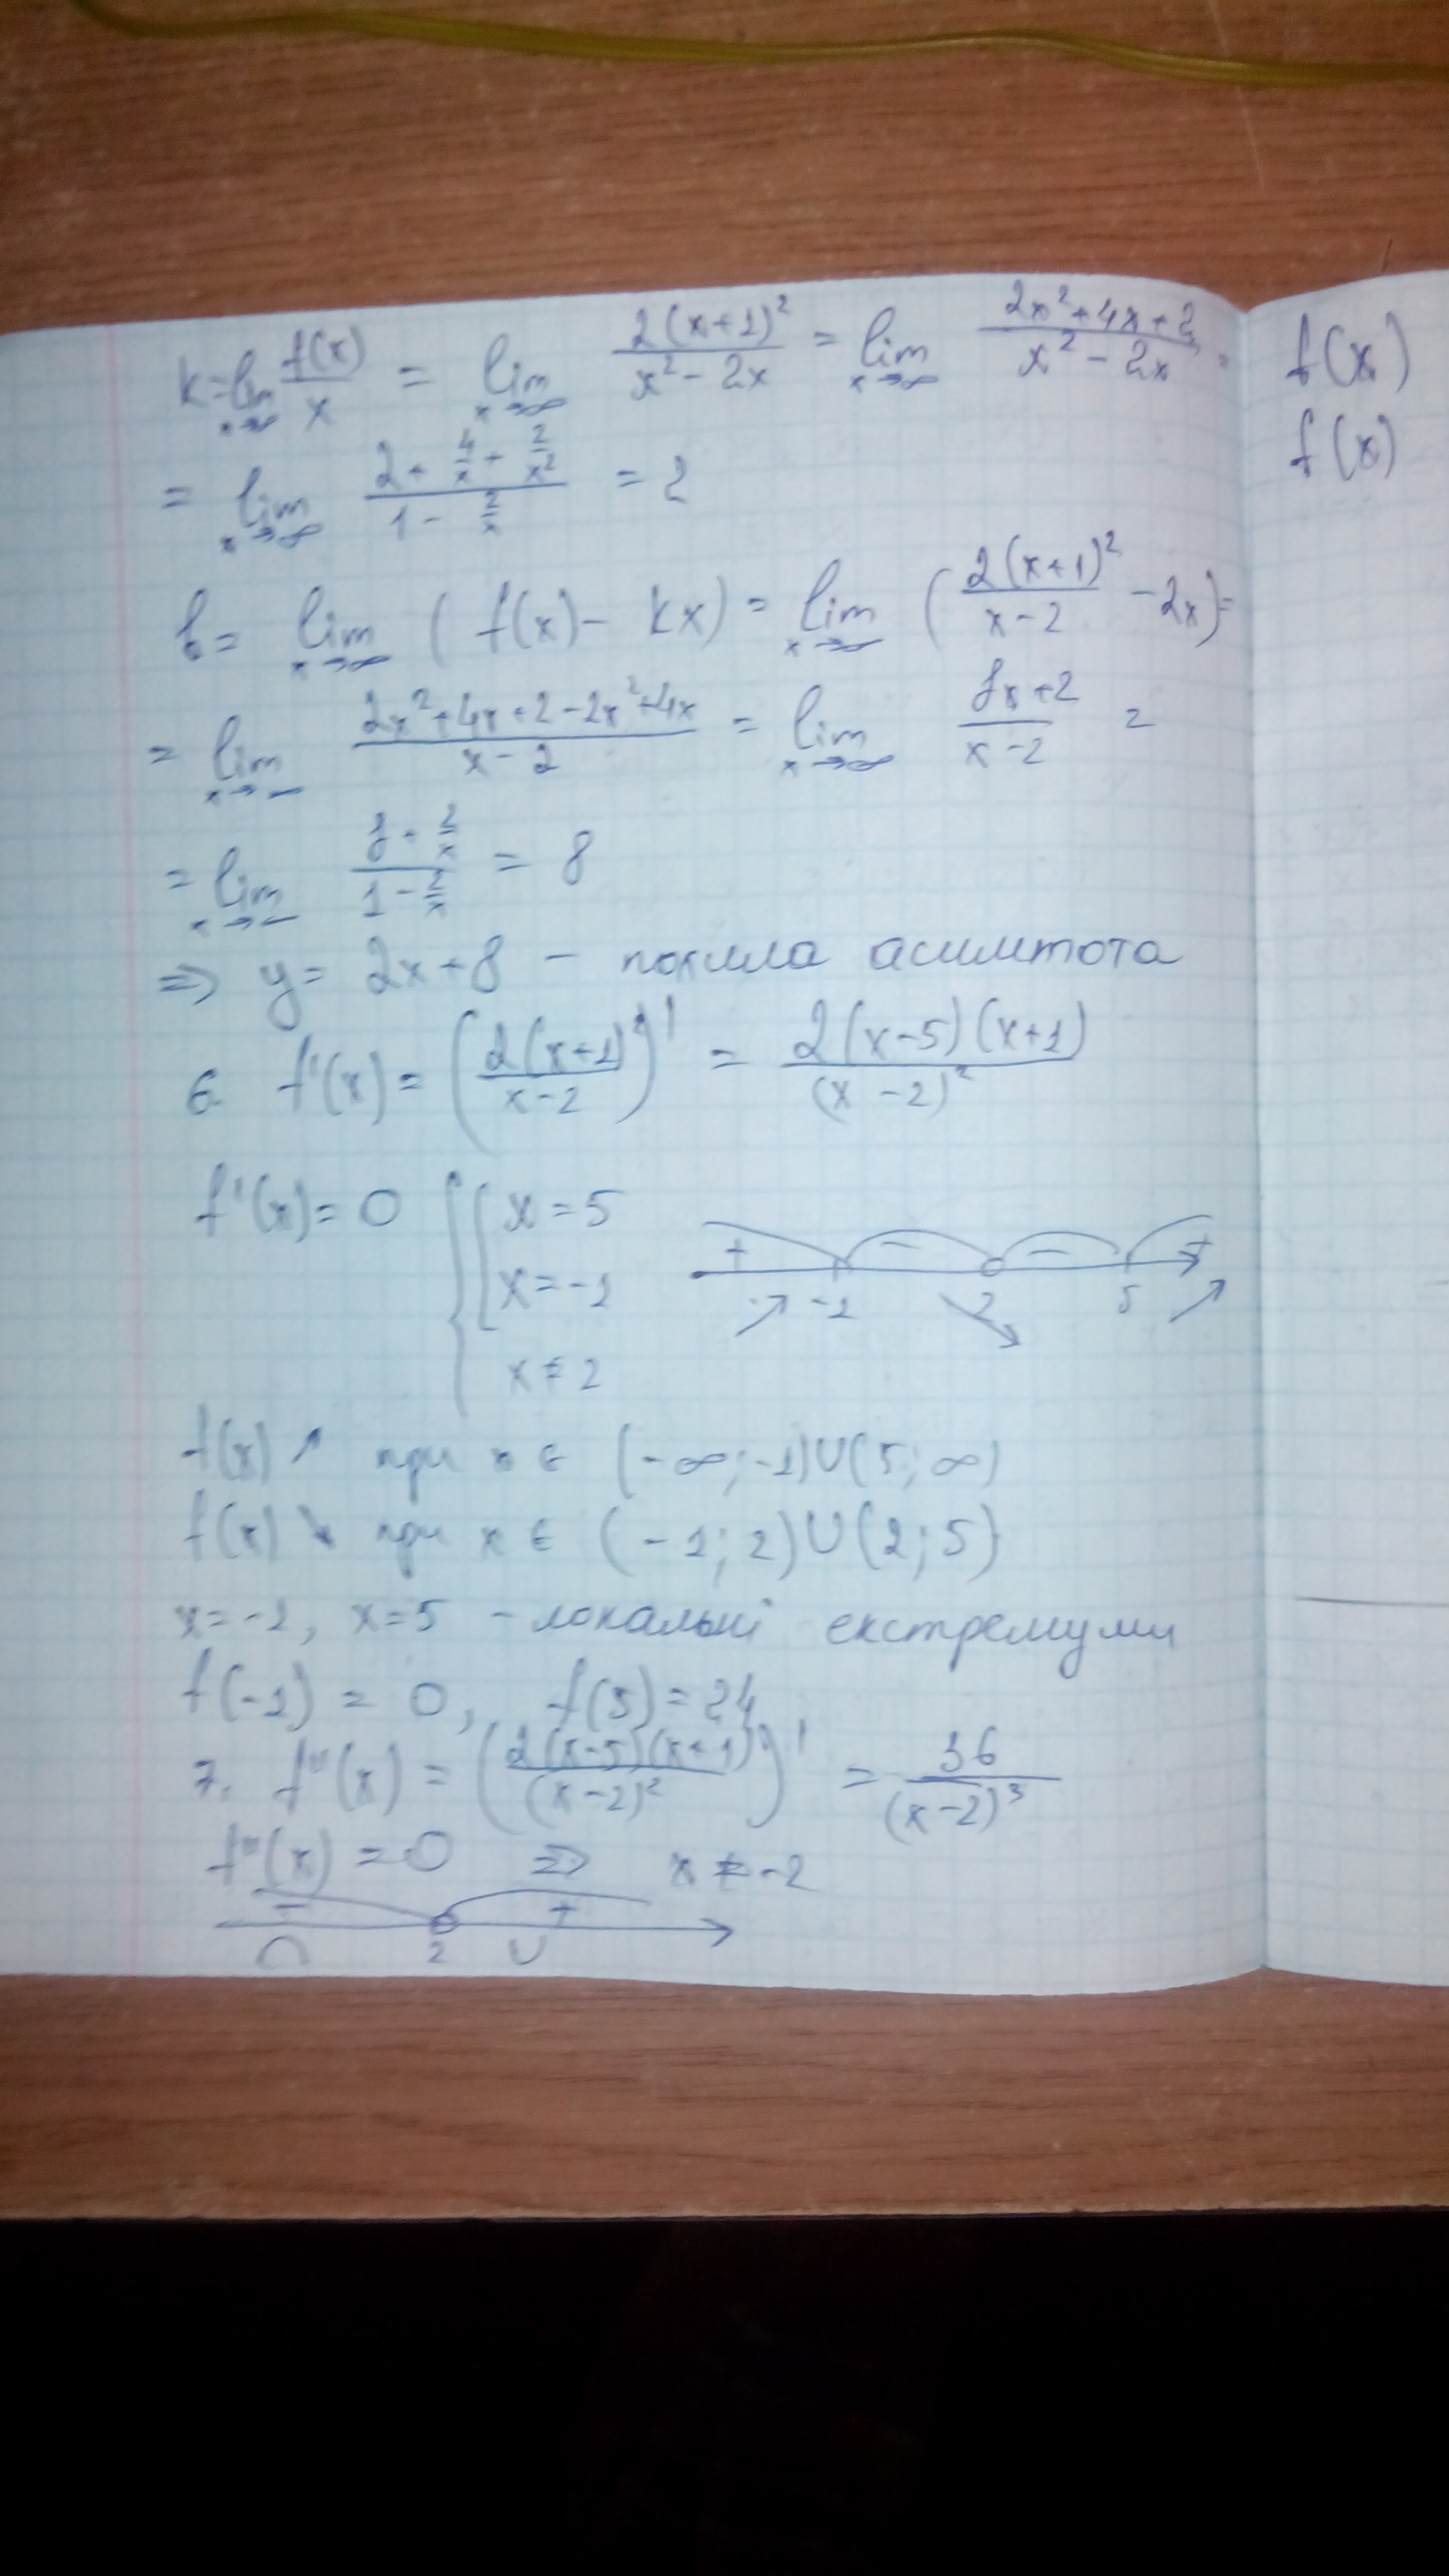 k = lim_{x→∞} f(x)/x = lim_{x→∞} 2(x+1)²/(x²-2x) = lim_{x→∞} (2x²+4x+2)/(x²-2x) =
= lim_{x→∞} (2 + 4/x + 2/x²)/(1 - 2/x) = 2
b = lim_{x→∞} (f(x) - kx) = lim_{x→∞} (2(x+1)²/(x-2) - 2x) =
= lim_{x→∞} (2x²+4x+2-2x²+4x)/(x-2) = lim_{x→∞} (8x+2)/(x-2) =
= lim_{x→∞} (8 + 2/x)/(1 - 2/x) = 8
⇒ y = 2x+8 - похила асимтота
6. f'(x) = (2(x+1)²/(x-2))' = 2(x-5)(x+1)/(x-2)²
f'(x) = 0 { [ x = 5
x = -1
x ≠ 2
+ - - +
-1 2 5
f(x) ↗ при x ∈ (-∞; -1)∪(5; ∞)
f(x) ↘ при x ∈ (-1; 2)∪(2; 5)
x = -1, x = 5 - локальні екстремуми
f(-1) = 0, f(5) = 24
7. f''(x) = (2(x-5)(x+1)/(x-2)²)' = 36/(x-2)³
f''(x) = 0 ⇒ x ≠ -2
- +
∩ 2 ∪
f(x)
f(x)